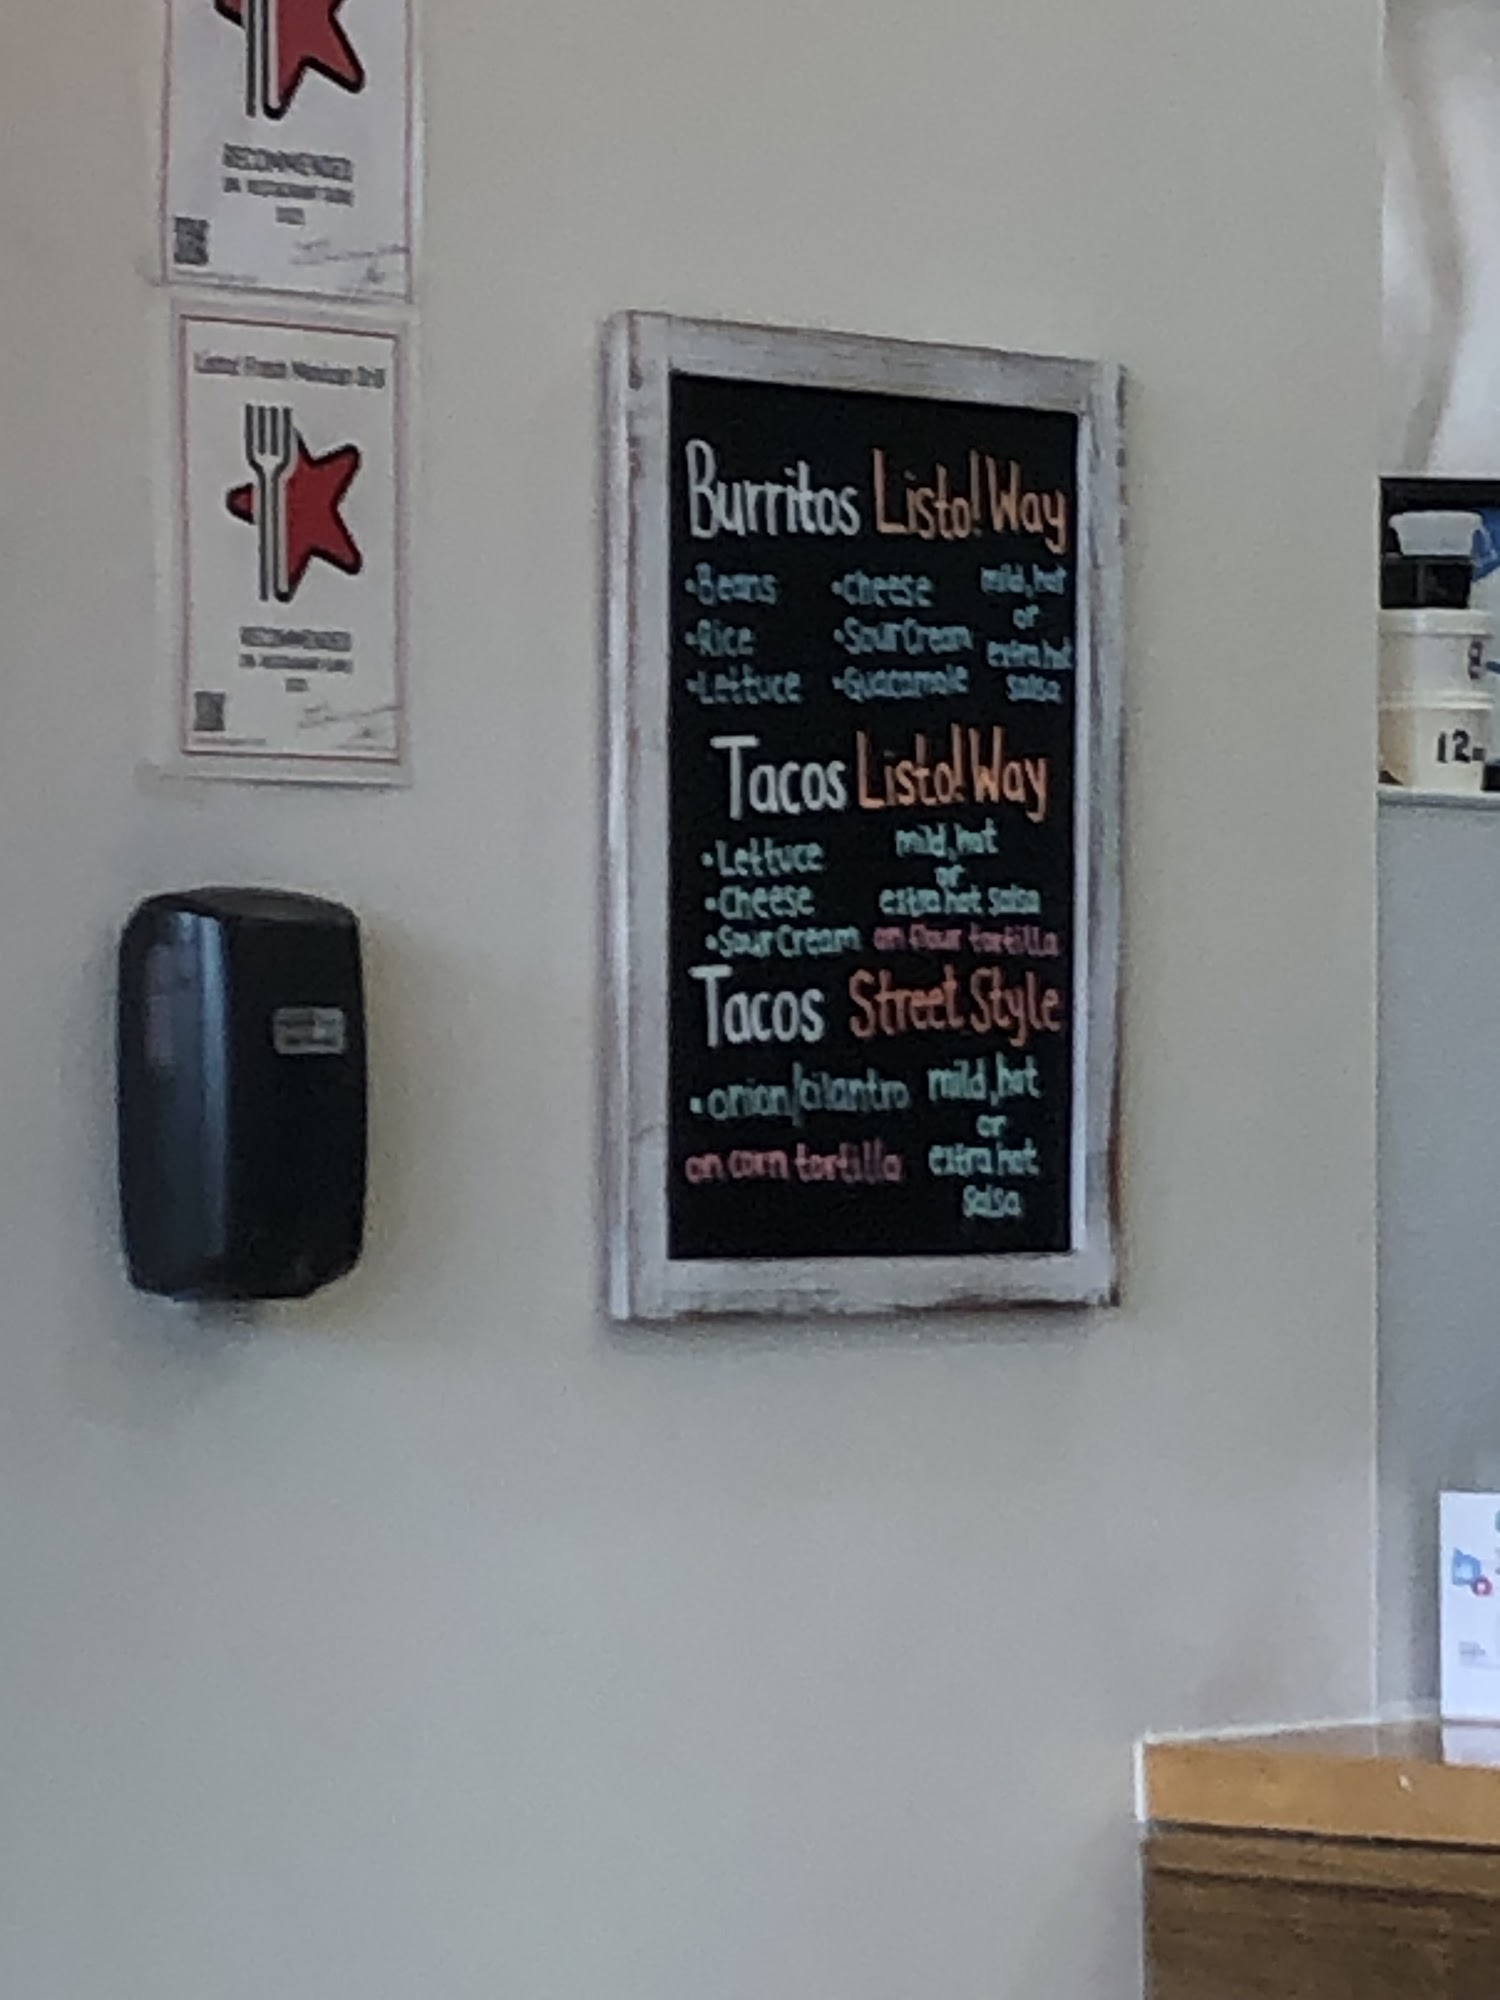 RECOMMENDED
Listo! Fresh Mexican Grill
RECOMMENDED
Burritos Listo! Way
•Beans •cheese mild, hot
or
•Rice •Sour Cream extra hot
•Lettuce •Guacamole salsa
Tacos Listo! Way
•Lettuce mild, hot
or
•Cheese extra hot salsa
•Sour Cream on flour tortilla
Tacos Street Style
•onion/cilantro mild, hot
or
on corn tortilla extra hot
salsa
8
12